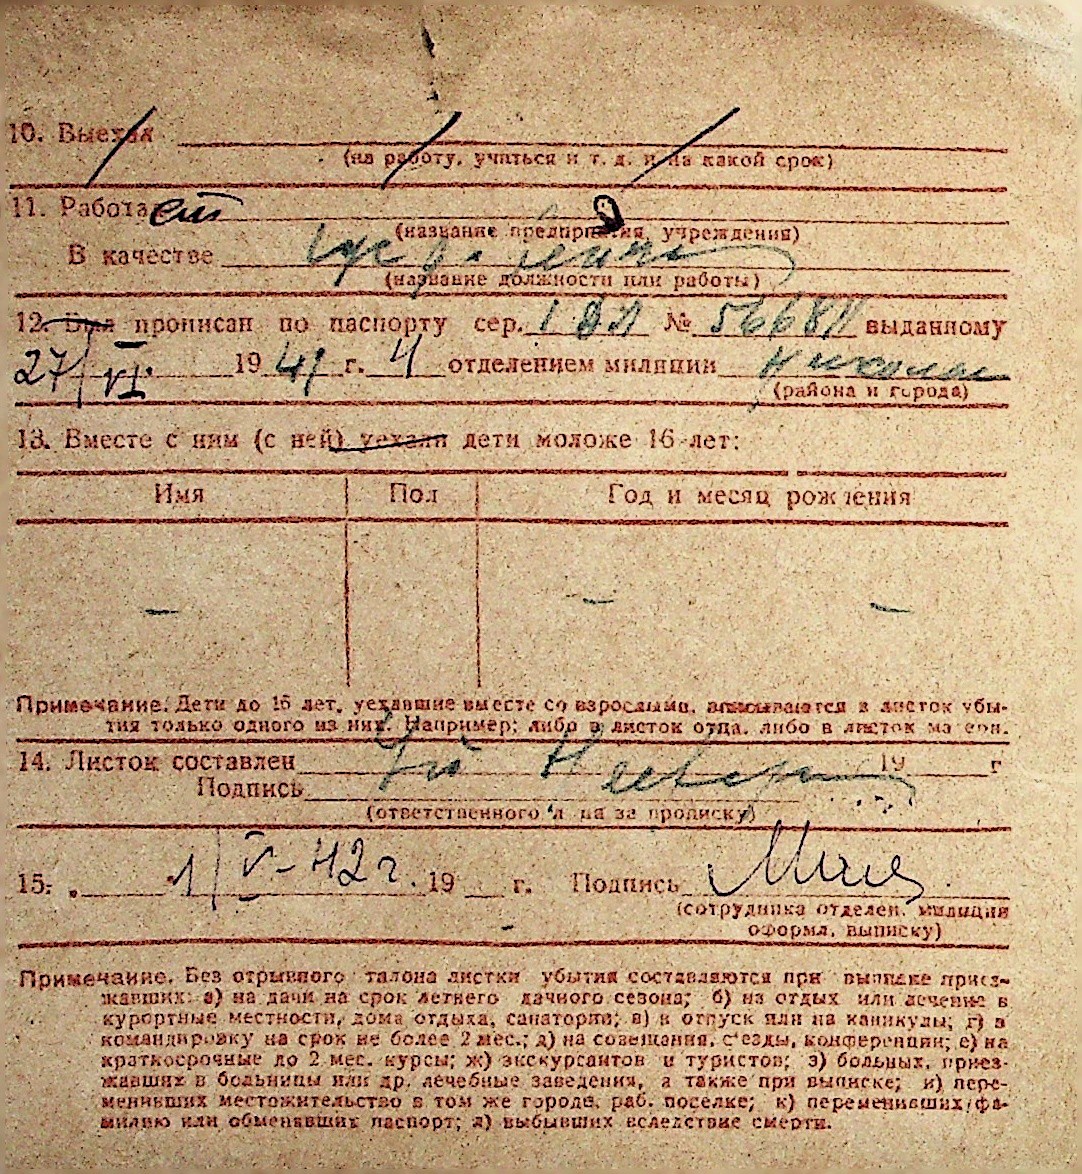 10. Выехал
(на работу, учиться и т. д. и на какой срок)
11. Работает
(название предприятия, учреждения)
В качестве
(название должности или работы)
12. Был прописан по паспорту сер. № выданному
27/VI. 1941 г. 4 отделением милиции
(района и города)
13. Вместе с ним (с ней) уехали дети моложе 16 лет:
Имя Пол Год и месяц рождения
— — —
Примечание. Дети до 16 лет, уехавшие вместе со взрослыми, вписываются в листок убы-
тия только одного из них. Например: либо в листок отца, либо в листок матери.
14. Листок составлен 19 г
Подпись
(ответственного лица за прописку)
15. 1/V-42 г. 19 г. Подпись
(сотрудника отделен. милиции
оформл. выписку)
Примечание. Без отрывного талона листки убытия составляются при выписке приез-
жавших: а) на дачи на срок летнего дачного сезона; б) на отдых или лечение в
курортные местности, дома отдыха, санатории; в) в отпуск или на каникулы; г) в
командировку на срок не более 2 мес.; д) на совещания, с'езды, конференции; е) на
краткосрочные до 2 мес. курсы; ж) экскурсантов и туристов; з) больных, приез-
жавших в больницы или др. лечебные заведения, а также при выписке; и) пере-
менивших местожительство в том же городе, раб. поселке; к) переменивших фа-
милию или обменявших паспорт; л) выбывших вследствие смерти.